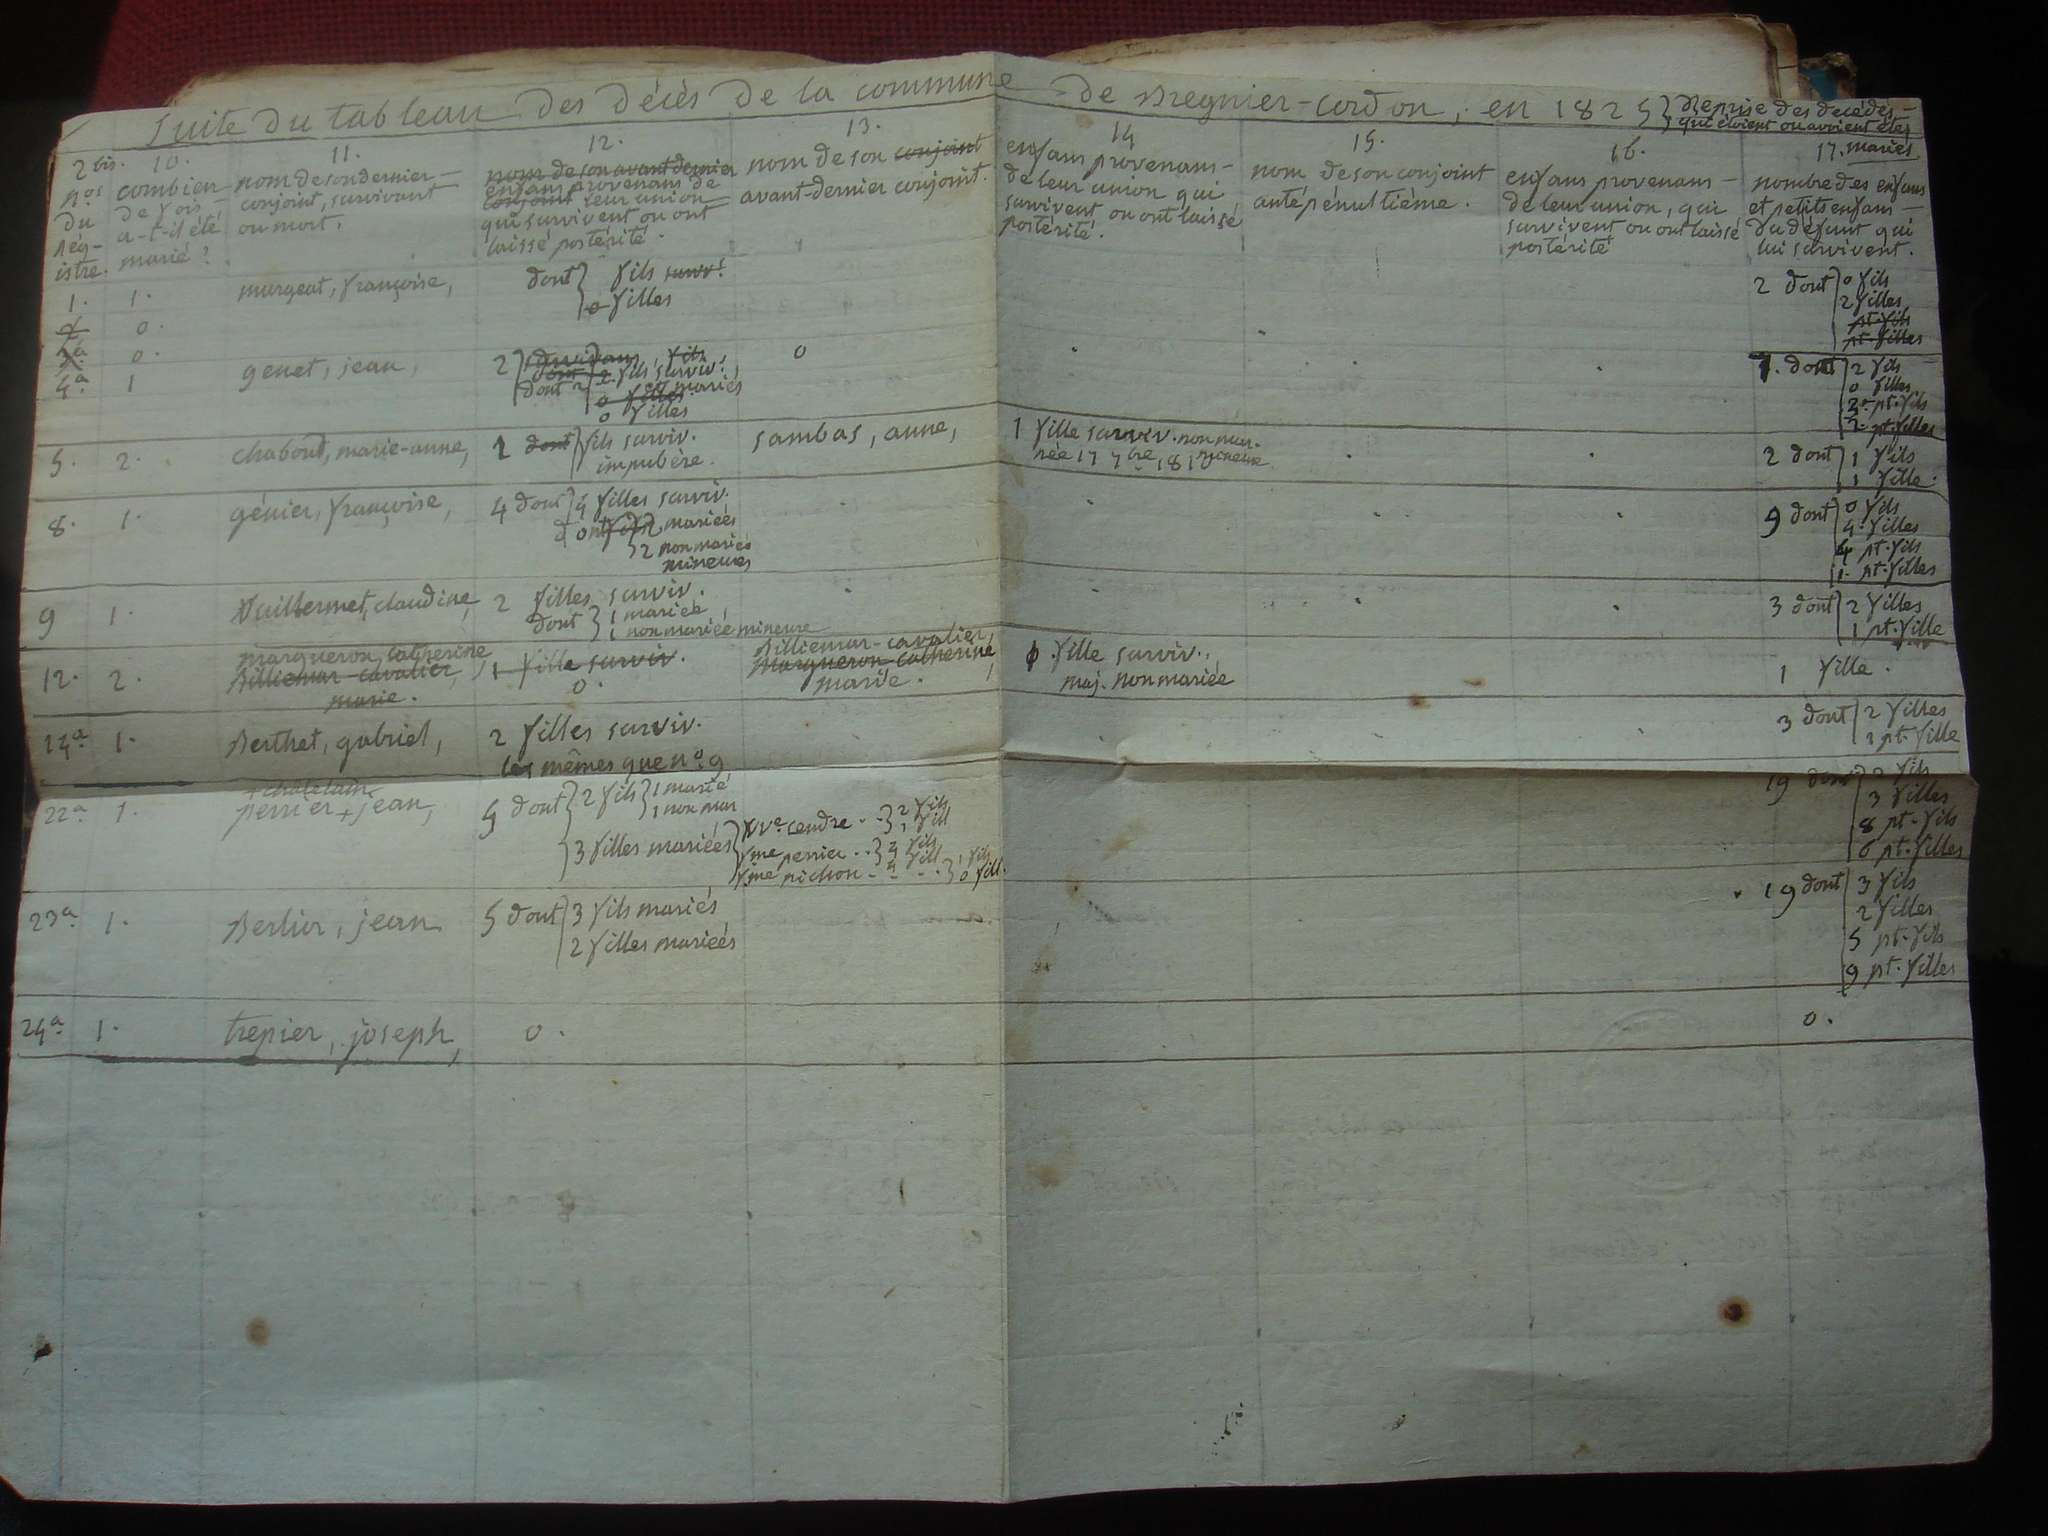 Suite du tableau des décès de la commune de Bregnier-cordon, en 1825 } Reprise des decédés
qui étoient ou avoient étés
mariés
2 bis. 10. 11. 12. 13. 14 15. 16. 17.
nos du rég-istre.
combien de fois a-t-il été marié ?
nom de son dernier conjoint, survivant ou mort.
nom de son avant dernier conjoint
enfans provenans de leur union qui survivent ou ont laissé postérité.
nom de son conjoint
avant-dernier conjoint.
enfans provenans de leur union qui survivent ou ont laissé postérité.
nom de son conjoint antépénultième.
enfans provenans de leur union, qui survivent ou ont laissé postérité
nombre des enfans et petits enfans du défunt qui lui survivent.
1. 1. murgeat, françoise, dont } fils surv.t 2 dont } 0 fils
0 filles 2 filles
pt. fils
pt. filles
0.
0.
4a. 1 genet, jean, 2 dont 2 fils surviv. mariés 0 7. dont } 2 fils
0 filles 0 filles
pt. fils
2 pt. filles
5. 2. chabout, marie-anne, 1 dont } fils surviv. sambas, anne, 1 fille surviv. non mar. 2 dont } 1 fils
impubère. née 17 7bre 181 mineure 1 fille.
8. 1. génier, françoise, 4 dont } 4 filles surviv. 9 dont } 0 fils
dont 2 mariées 4. filles
2 non mariés 4 pt. fils
mineures 1. pt. filles
9 1. Vuillermet, claudine, 2 filles surviv. 3 dont } 2 filles
dont } 1 mariée, 1 pt. fille
1 non mariée mineure
12. 2. margueron, catherine Billiemar-cavalier, fille surviv., 1 fille.
Billiemar-cavalier, 1 fille surviv. Margueron catherine maj. non mariée
marie. 0. marie.
14a. 1. Berthet, gabriel, 2 filles surviv. 3 dont } 2 filles
les mêmes que no. 9 1 pt. fille
22a. 1. perrier + jean, 5 dont } 2 fils } 1 marié 19 dont } 2 fils
+ châtelain 1 non mar 3 filles
3 filles mariées } Vve. cendre .. } 2 fils 8 pt. fils
1 fill 6 pt. filles
fme perrier .. } fils
fill
fme pichon - - . } 1 fils
0 fill.
23a. 1. Berlior, jean 5 dont } 3 fils mariés 19 dont } 3 fils
2 filles mariées 2 filles
5 pt. fils
9 pt. filles
24a. 1. trepier, joseph, 0. 0.